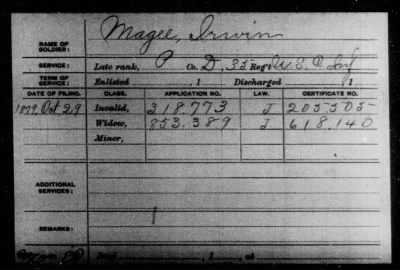 Magee, Irwin
NAME OF SOLDIER:
SERVICE: Late rank, P Co. D, 35 Reg't U.S.C Inf
TERM OF SERVICE: Enlisted , 1 Discharged , 1
DATE OF FILING. CLASS. APPLICATION NO. LAW. CERTIFICATE NO.
1879, Oct 29 Invalid, 318.773 J 205505
Widow, 853.389 J 618.140
Minor,
ADDITIONAL SERVICES:
REMARKS:
Died , 1 , at